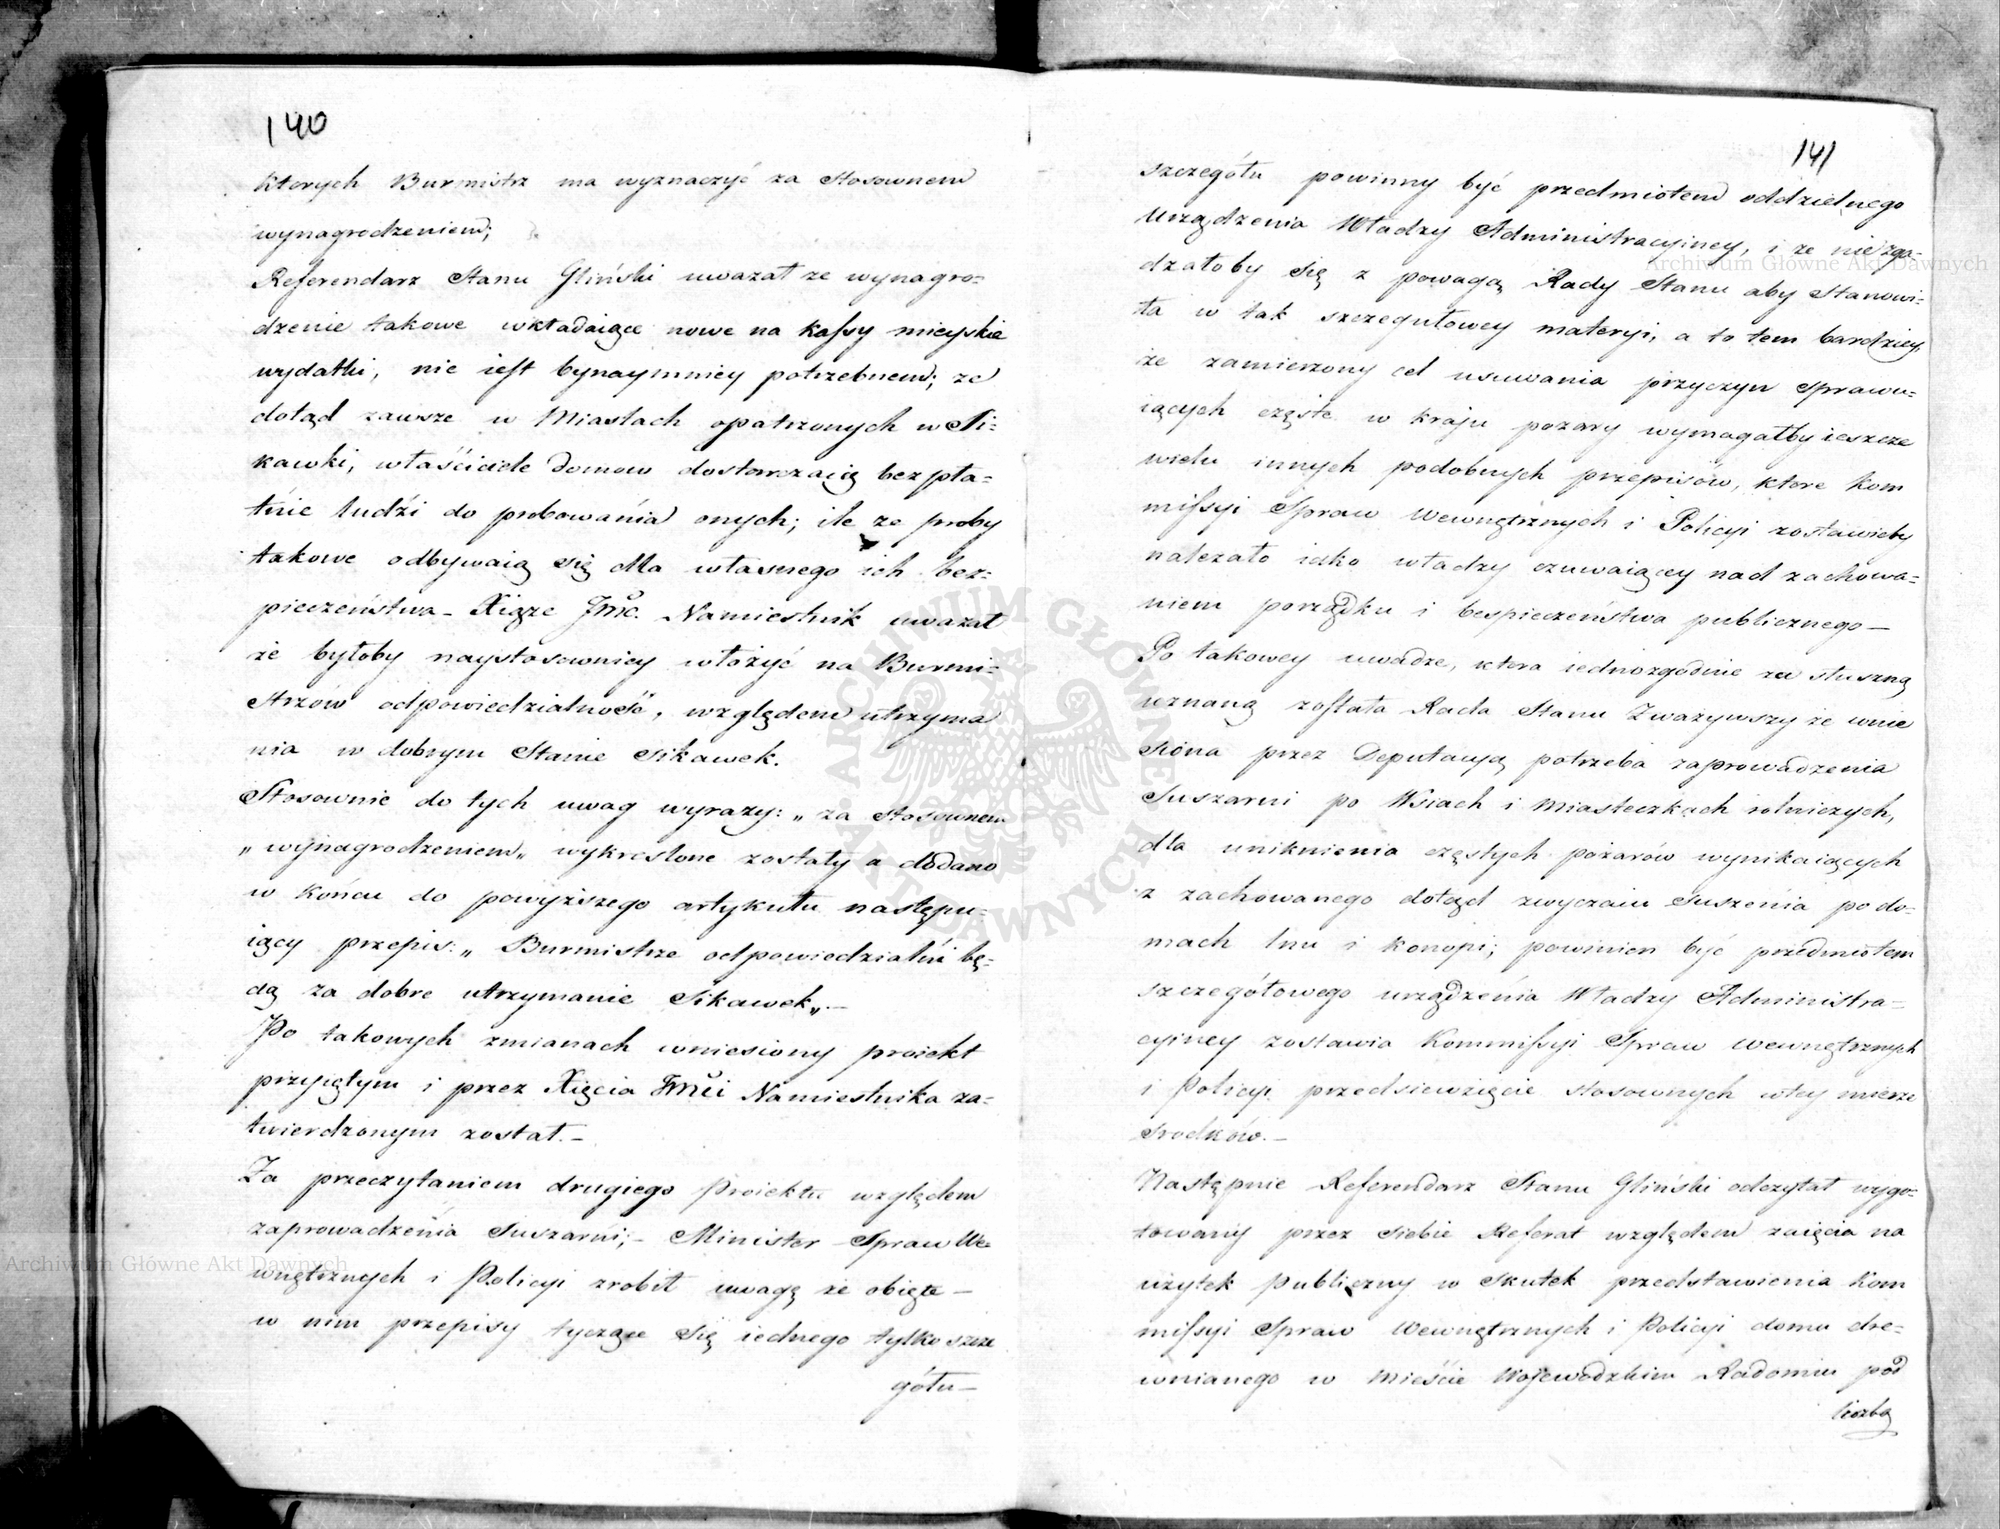 140
ktorych Burmistrz ma wyznaczyć za stosownem
wynagrodzeniem;
Referendarz Stanu Gliński uwazał ze wynagro-
dzenie takowe wkładaiące nowe na kassy mieyskie
wydatki, nie iest bynaymniey potrzebnem; ze
dotąd zawsze w Miastach opatrzonych w Si-
kawki, właściciele domow dostarczaią bezpła-
tnie ludźi do probowania onych; ile ze proby
takowe odbywaią się dla własnego ich bez-
pieczeństwa - Xiąże Jmć. Namiestnik uwazał
że byłoby naystosowniey włożyć na Burmi-
strzów odpowiedzialność, względem utrzyma
nia w dobrym Stanie Sikawek.
Stosownie do tych uwag wyrazy: „ za stosownem
„ wynagrodzeniem „ wykreslone zostały a dodano
w końcu do powyższego artykułu następu-
iący przepis: „ Burmistrze odpowiedzialni bę-
dą za dobre utrzymanie Sikawek „. -
Po takowych zmianach wniesiony proiekt
przyiętym i przez Xięcia Jmći Namiestnika za-
twierdzonym został. -
Za przeczytaniem drugiego Proiektu względem
zaprowadzenia Suszarni; - Minister Spraw We-
wnętrznych i Policyi zrobił uwagę że obięte -
w nim przepisy tyczące się iednego tylko szcze
gółu -
141
szczegółu powinny być przedmiotem oddzielnego
Urządzenia Władzy Administracyiney, i ze nie zga-
dzałoby się z powagą Rady Stanu aby stanowi-
ła w tak szczegułowey materyi, a to tem bardziey,
że zamierzony cel usuwania przyczyn sprawu-
iących częste w kraju pozary wymagałby ieszcze
wielu innych podobnych przepisów, ktore Kom
missyi Spraw Wewnętrznych i Policyi zostawićby
nalezało iako władzy czuwaiącey nad zachowa-
niem porządku i bespieczeństwa publicznego -
Po takowey uwadze, ktora iednozgodnie za słuszną
uznaną została Rada Stanu Zważywszy że wnie
siona przez Deputacyą potrzeba zaprowadzenia
Suszarni po Wsiach i Miasteczkach rolniczych,
dla uniknienia częstych pożarów wynikaiących
z zachowanego dotąd zwyczaiu suszenia po do-
mach lnu i konopi; powinien być przedmiotem
szczegółowego urządzenia Władzy Administra-
cyiney zostawia Kommissyi Spraw Wewnętrznych
i Policyi przedsiewzięcie stosownych w tey mierze
srodków. -
Następnie Referendarz Stanu Gliński odczytał wygo-
towany przez siebie Referat względem zaięcia na
użytek publiczny w skutek przedstawienia Kom
missyi Spraw Wewnętrznych i Policyi domu dre-
wnianego w Mieście Wojewodzkim Radomiu pod
liczbą
Archiwum Główne Akt Dawnych
Archiwum Główne Akt Dawnych
ARCHIWUM GŁÓWNE AKT DAWNYCH